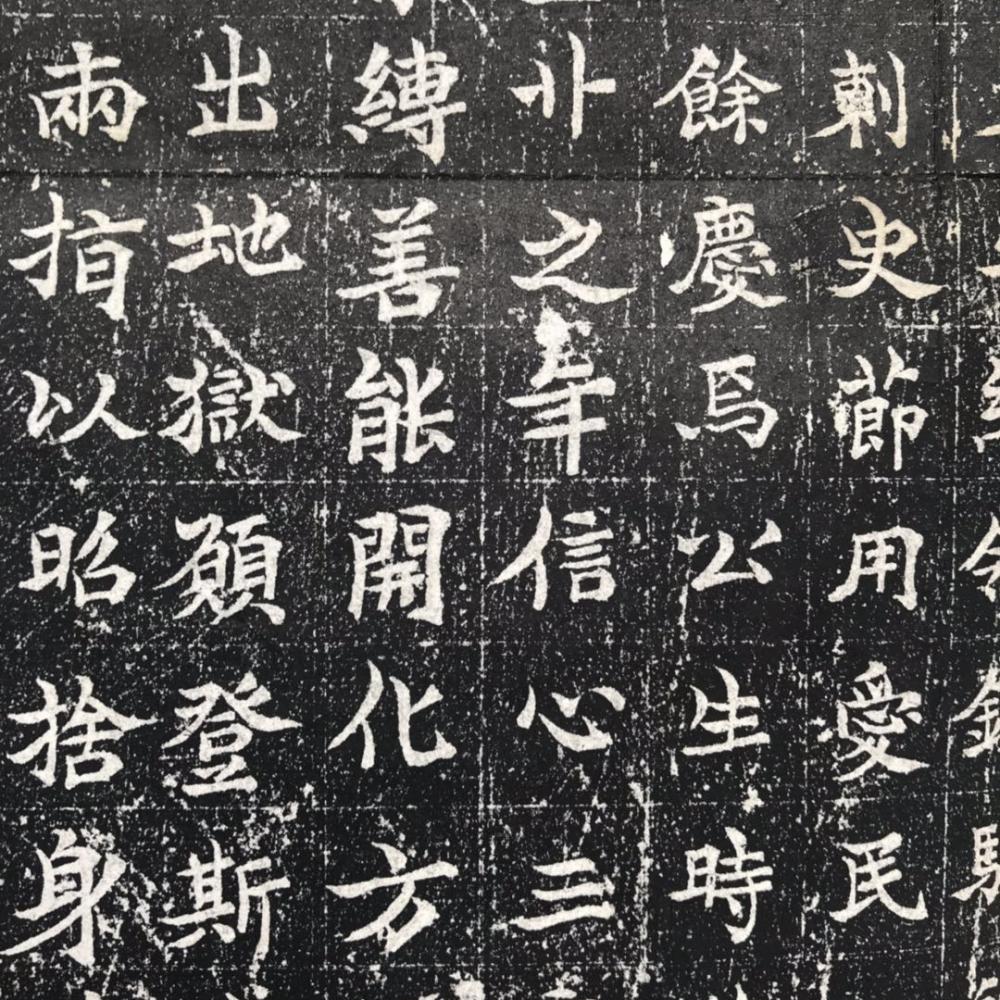 刺史節用愛民
餘慶焉公生時
廾之年信心三
縛善能開化方
出地獄願登斯
兩指以昭捨身